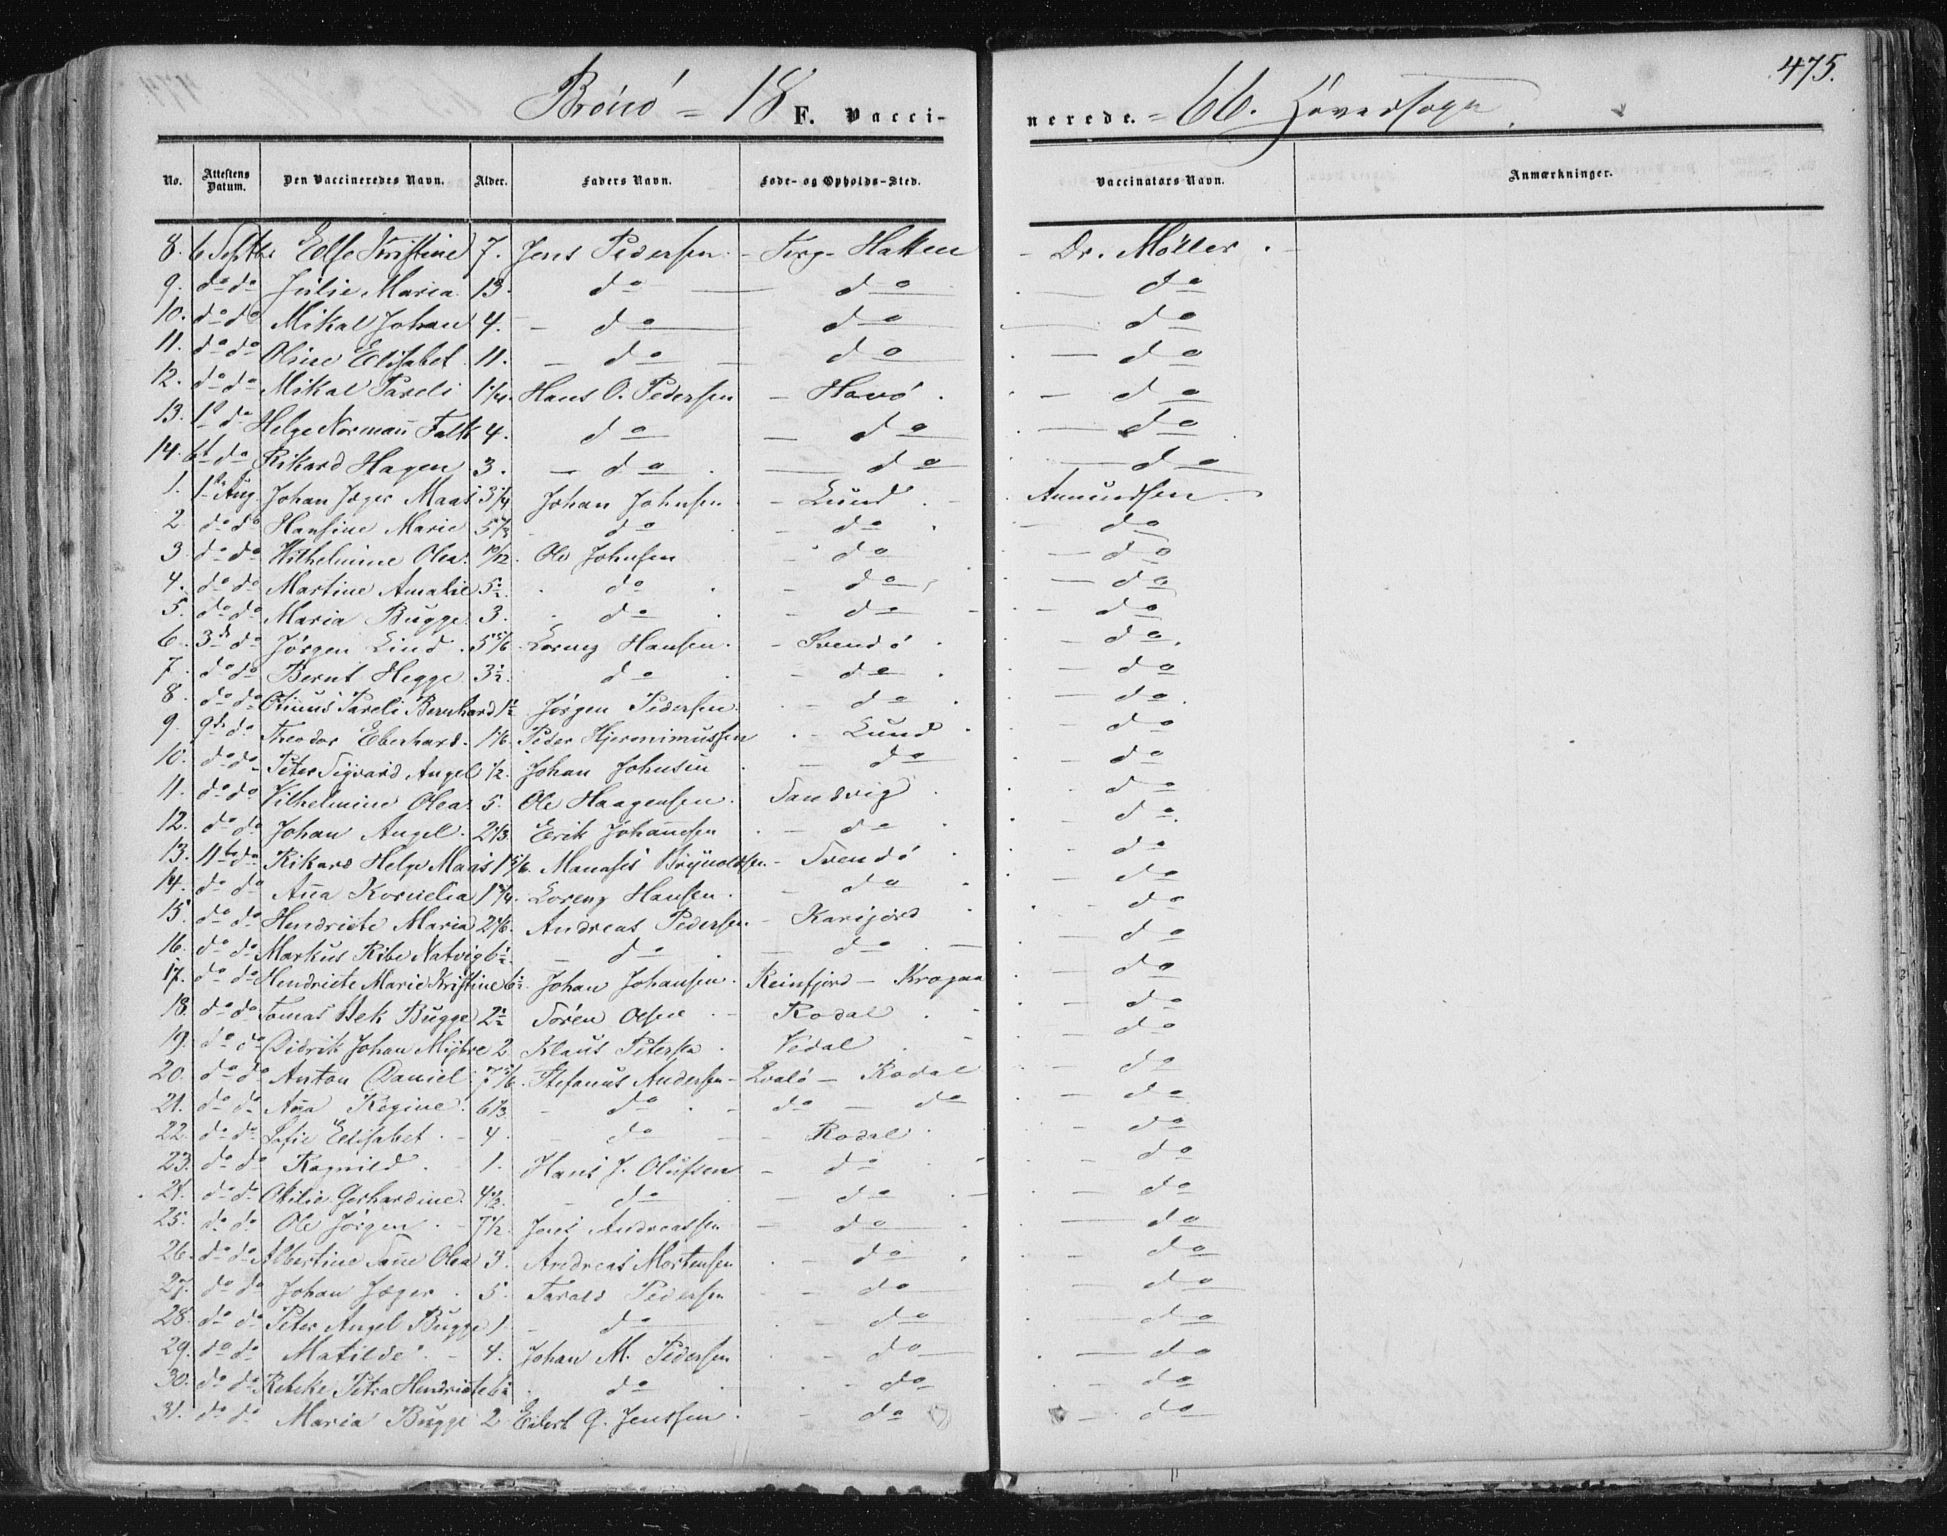 Brønø = 18 F. Vacci-nerede. = 66. Hovedsogn. 475.
No. Attestens Datum. Den Vaccineredes Navn. Alder. Faders Navn. Føde- og Opholds-Sted. Vaccinators Navn. Anmærkninger.
8. 6 Septbr Else Kristine 7. Jens Pedersen - Torg-Hatten - Dr. Møller.
9. do do Julie Maria 13. do do do
10. do do Mikal Johan 4. do do do
11. do do Oline Elisabet 11. do do do
12. do do Mikal Pareli 1 1/4. Hans O. Pedersen - Havø. do
13. do Helge Normañ Falk 4. do do do
14. 6t do Rikard Hagen 3. do do do
1. Aug. Johan Jæger Maas 3 1/4 Johan Johnsen - Lund. Amundsen.
2. do do Hansine Marie do do do
3. do do Vilhelmine Olea. Ole Johnsen do do
4. do do Martine Amalie 5 1/2. do do do
5. do do Maria Bugge 3. do do do
6. 3d do Jørgen Lind. 5 5/6. Lorenz Hansen. - Svendø do
7. do do Bernt Hegge 3 1/2. do do do
8. do do Otinus Pareli Bernhard 1 1/2 Jørgen Pedersen. do do
9. 9d do Theodor Eberhard. 1 1/6. Peder Hjeronimussen - Lund do
10. do do Peter Sigvard Angel 1/2. Johan Johnsen do do
11. do do Vilhelmine Olea. 5. Ole Haagensen. Sandvig do
12. do do Johan Angel. 2 1/3. Erik Johañesen do do
13. 11te do Rikard Helge Maas 1 5/6. Manases Brynoldsen - Svendø do
14. do do Aña Kornelia Lorenz Hansen. do do
15. do do Hendriete Maria 2 1/6. Andreas Pedersen - do
16. do do Markus Ribe Natvig 6 1/2. do do do
17. do do Hendriete Marie Kristine 6 1/2. Johan Johansen. Reinfjord - do
18. do do Tomas Bek Bugge 2 1/2 Søren Olsen Rodal. do
19. do do Didrik Johan 2 Klaus Petersen Vedal do
20. do do Anton Daniel 7 5/6. Stefanus Andersen - - Rodal do
21. do do Aña Regine. 6 1/3. do do - do do
22. do do Sofie Elisabet. 4. do - Rodal do
23. do do Ragnild 1. Hans J. Olufsen do do
24. do do Otilie Gerhardine. 4 1/2. do do do
25. do do Ole Jørgen. 7 1/2. Jens Andreassen do do
26. do do Albertine Olea 3. Andreas Mortensen do do
27. do do Johan Jæger. 5. Tarald Pedersen do do
28. do do Peter Angel Bugge 1. do do do
29. do do Matilde. 4. Johan M. Pedersen do do
30. do do Rebeke Petra Hendriete 6 1/2 do do do
31. do do Maria Bugge 2 Eilert G. Jenssen. do do